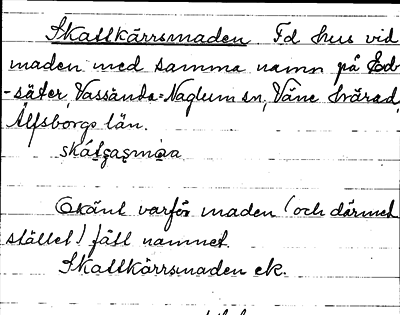 Skallkärrsmaden. Fd hus vid
maden med samma namn på Ed-
-säter, Vassända-Naglum sn, Väne härad,
Älfsborgs län.
Okänt varför maden (och därmed
stället) fått namnet.
Skallkärrsmaden ek.